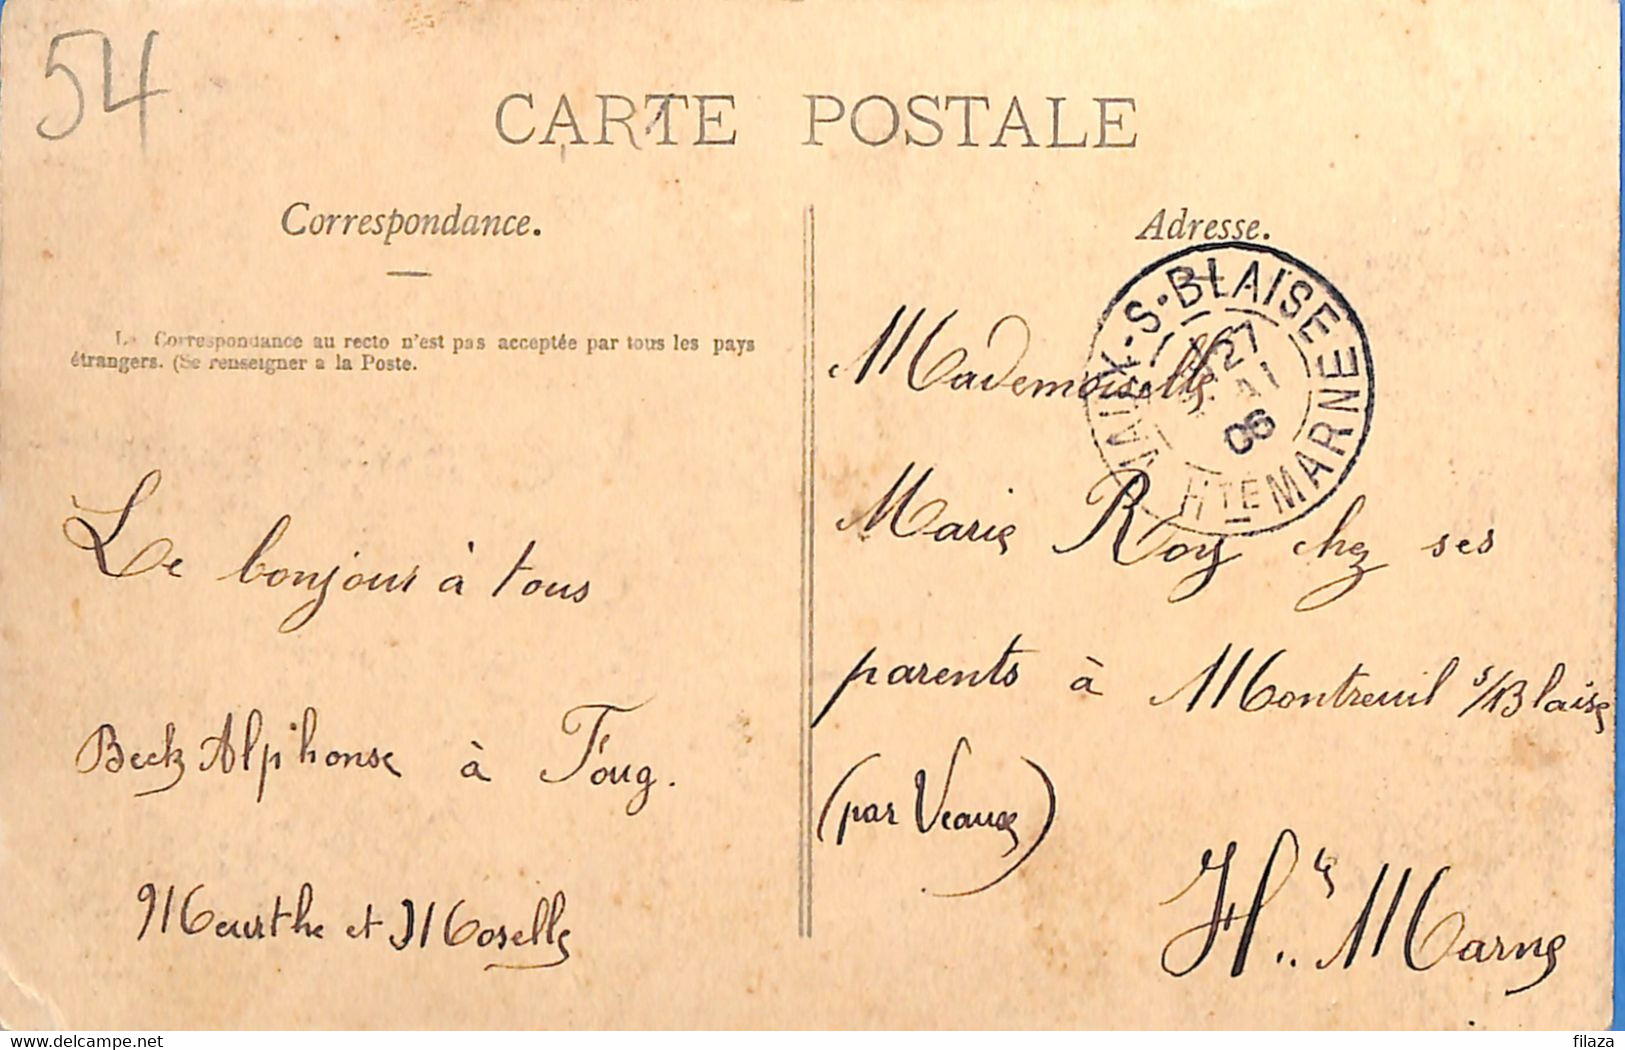 54
CARTE POSTALE
Correspondance.
La Correspondance au recto n'est pas acceptée par tous les pays
étrangers. (Se renseigner a la Poste.
Le bonjour à tous
Beck Alphonse à Foug.
Meurthe et Moselle
Adresse.
VAUX-S-BLAISE
27
06
HTE MARNE
Mademoiselle
Marie Roy chez ses
parents à Montreuil s/Blaise
(par Veaux)
Hte Marne
www.delcampe.net
filaza